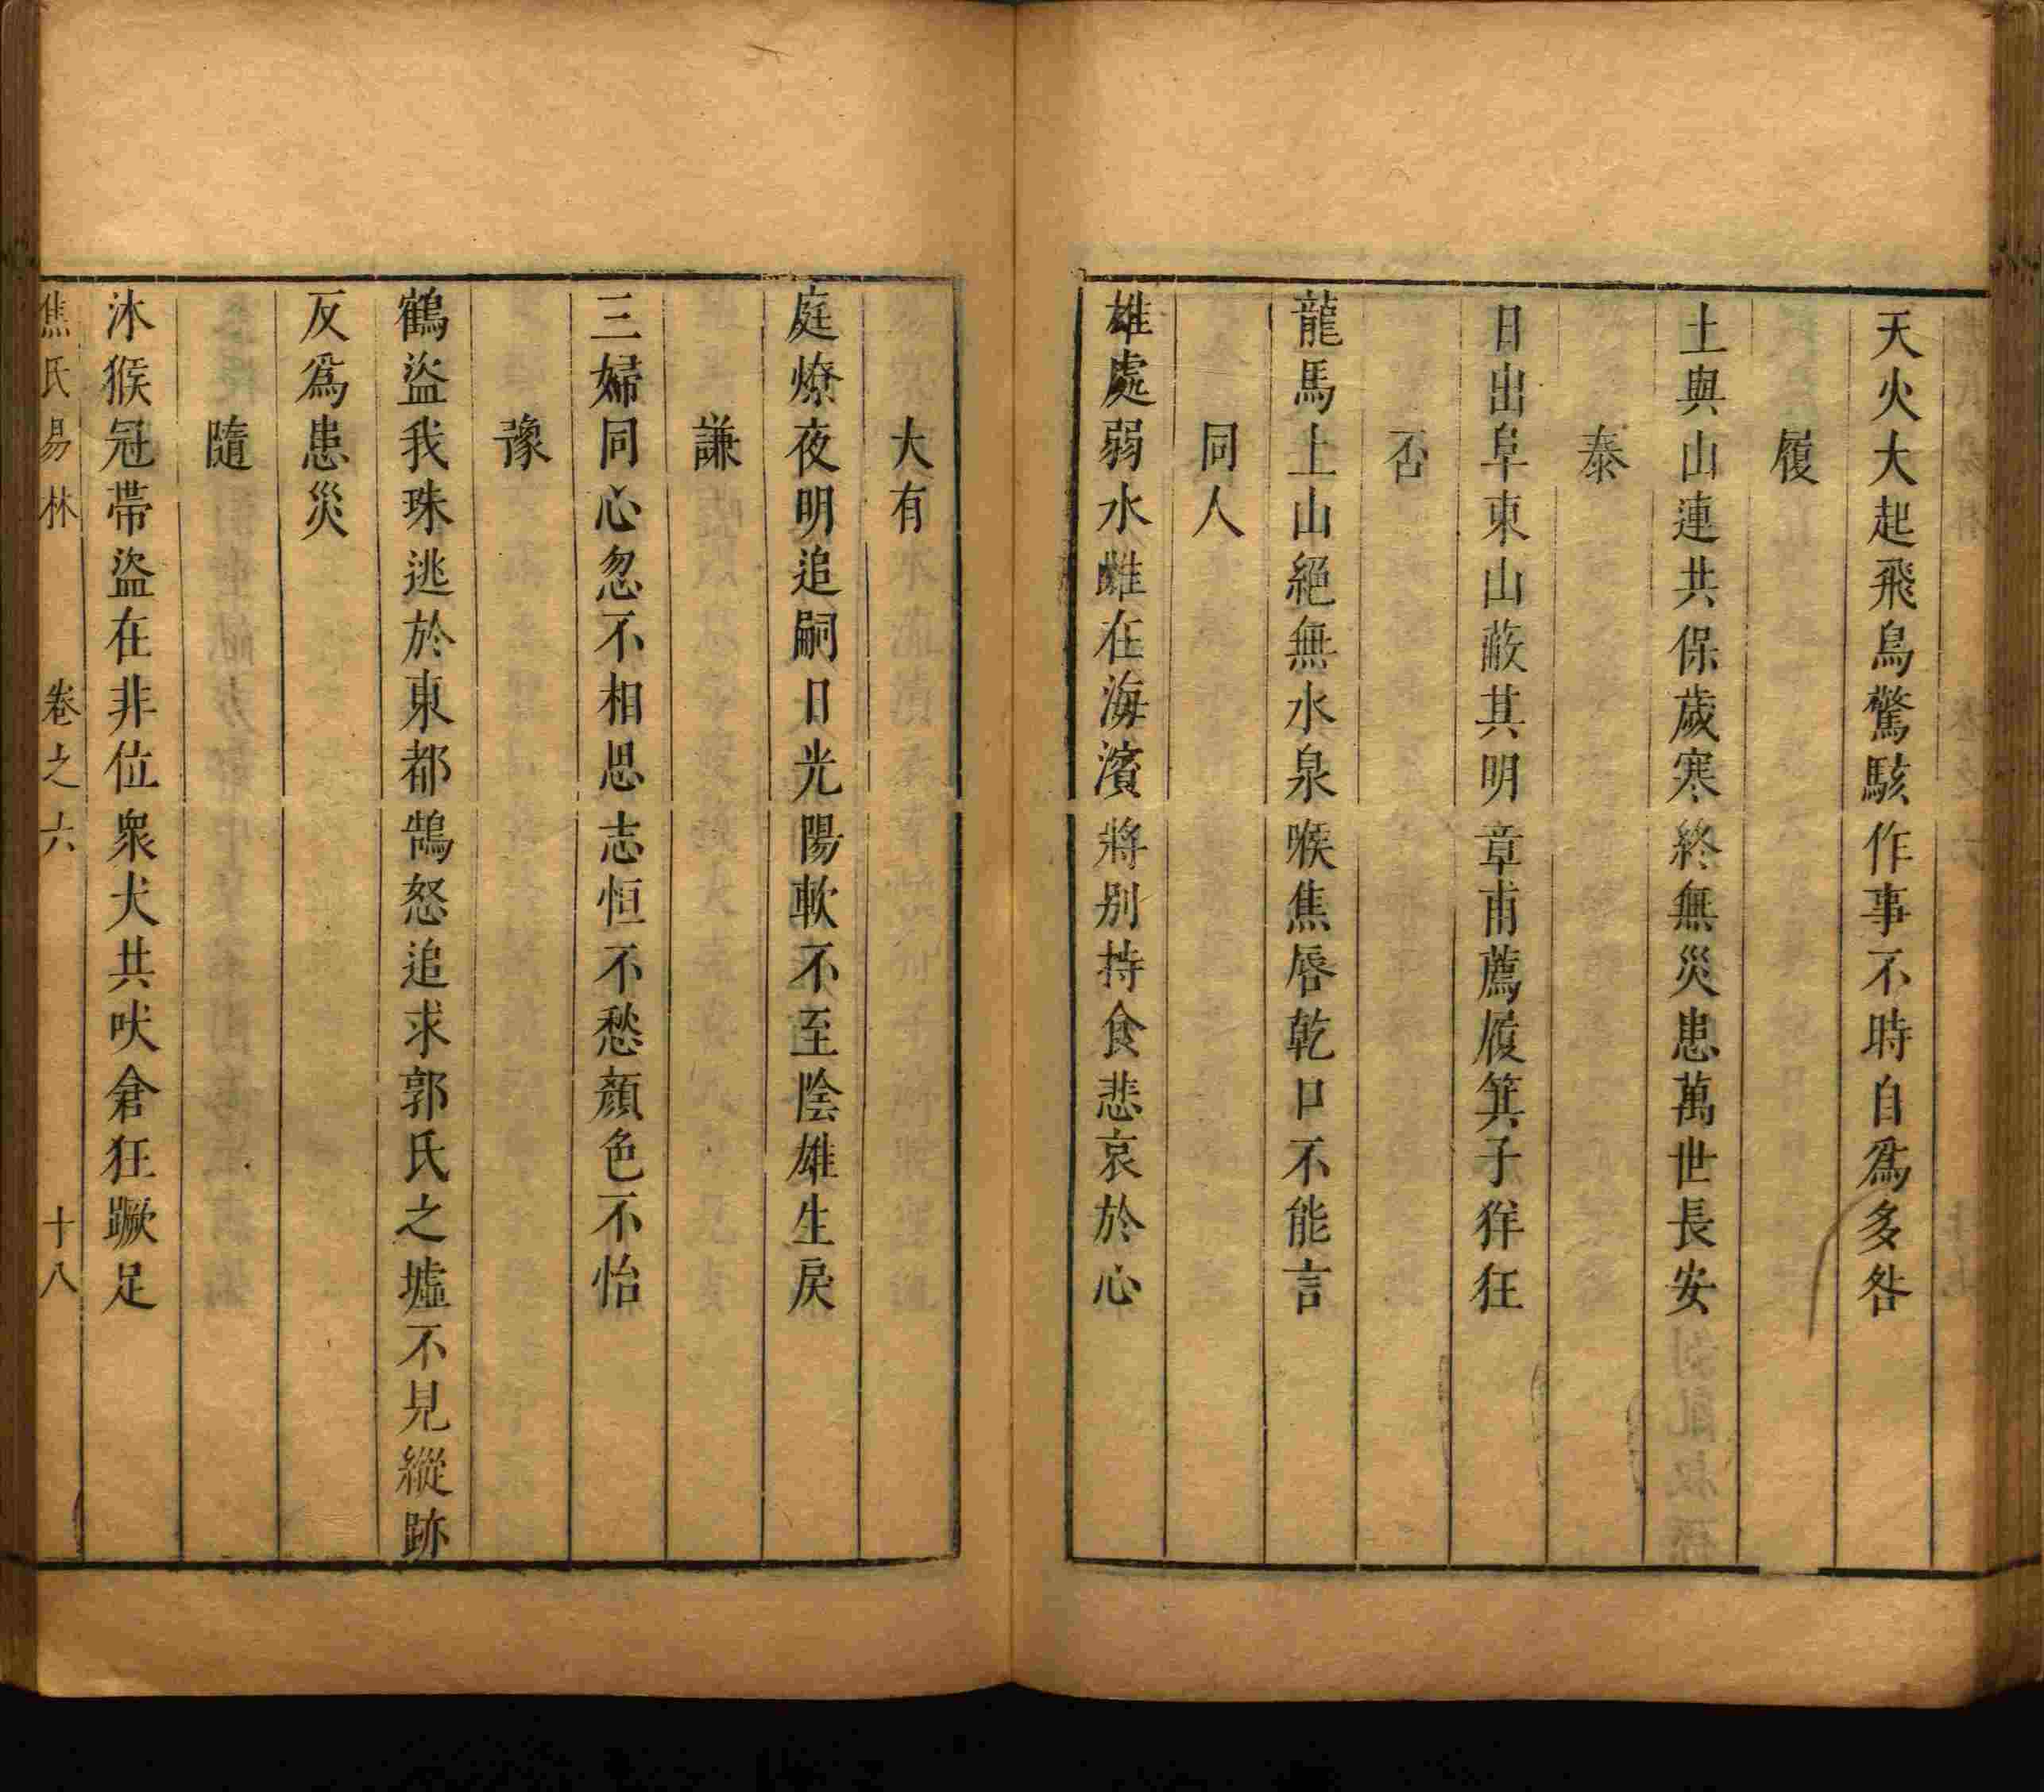 天火大起飛鳥驚駭作事不時自爲多咎
履
土與山連共保歲寒終無災患萬世長安
泰
日出阜東山蔽其明章甫薦履箕子狂狂
否
龍馬上山絕無水泉喉焦唇乾口不能言
同人
雄處弱水雌在海濱將别持食悲哀於心
大有
庭燎夜明追嗣日光陽軟不至陰雄生戾
謙
三婦同心忽不相思志恒不愁顏色不怡
豫
鶴盜我珠逃於東都鵠怒追求郭氏之墟不見縱跡
反爲患災
隨
沐猴冠帶盜在非位衆犬共吠倉狂蹶足
焦氏易林 卷之六 十八